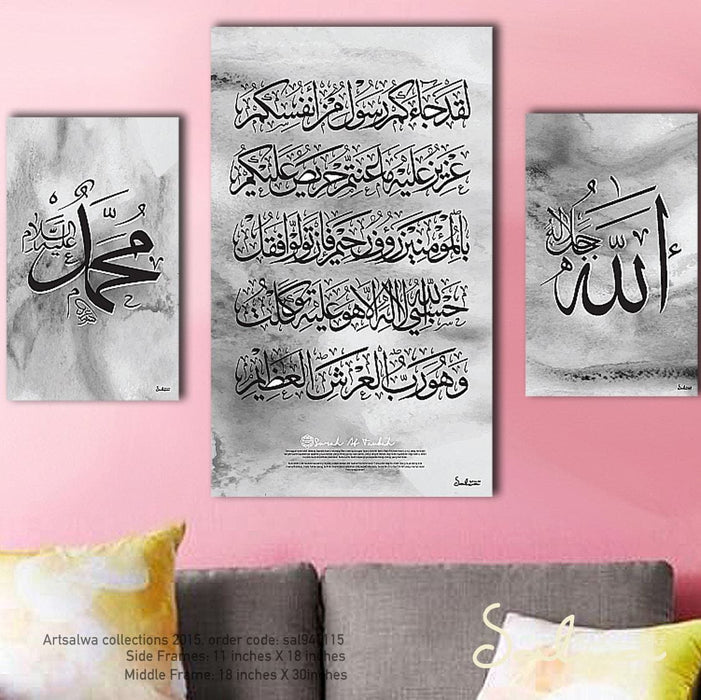 لقد جاءكم رسول من أنفسكم
عزيز عليه ما عنتم حريص عليكم
بالمؤمنين رؤوف رحيم فإن تولوا فقل
حسبي الله لا إله إلا هو عليه توكلت
وهو رب العرش العظيم
Surah At Taubah
محمد
عليه السلام
الله
جل جلاله
Artsalwa collections 2015. order code:
Side Frames: 11 inches X 18 inches
Middle Frame: 18 inches X 30inches